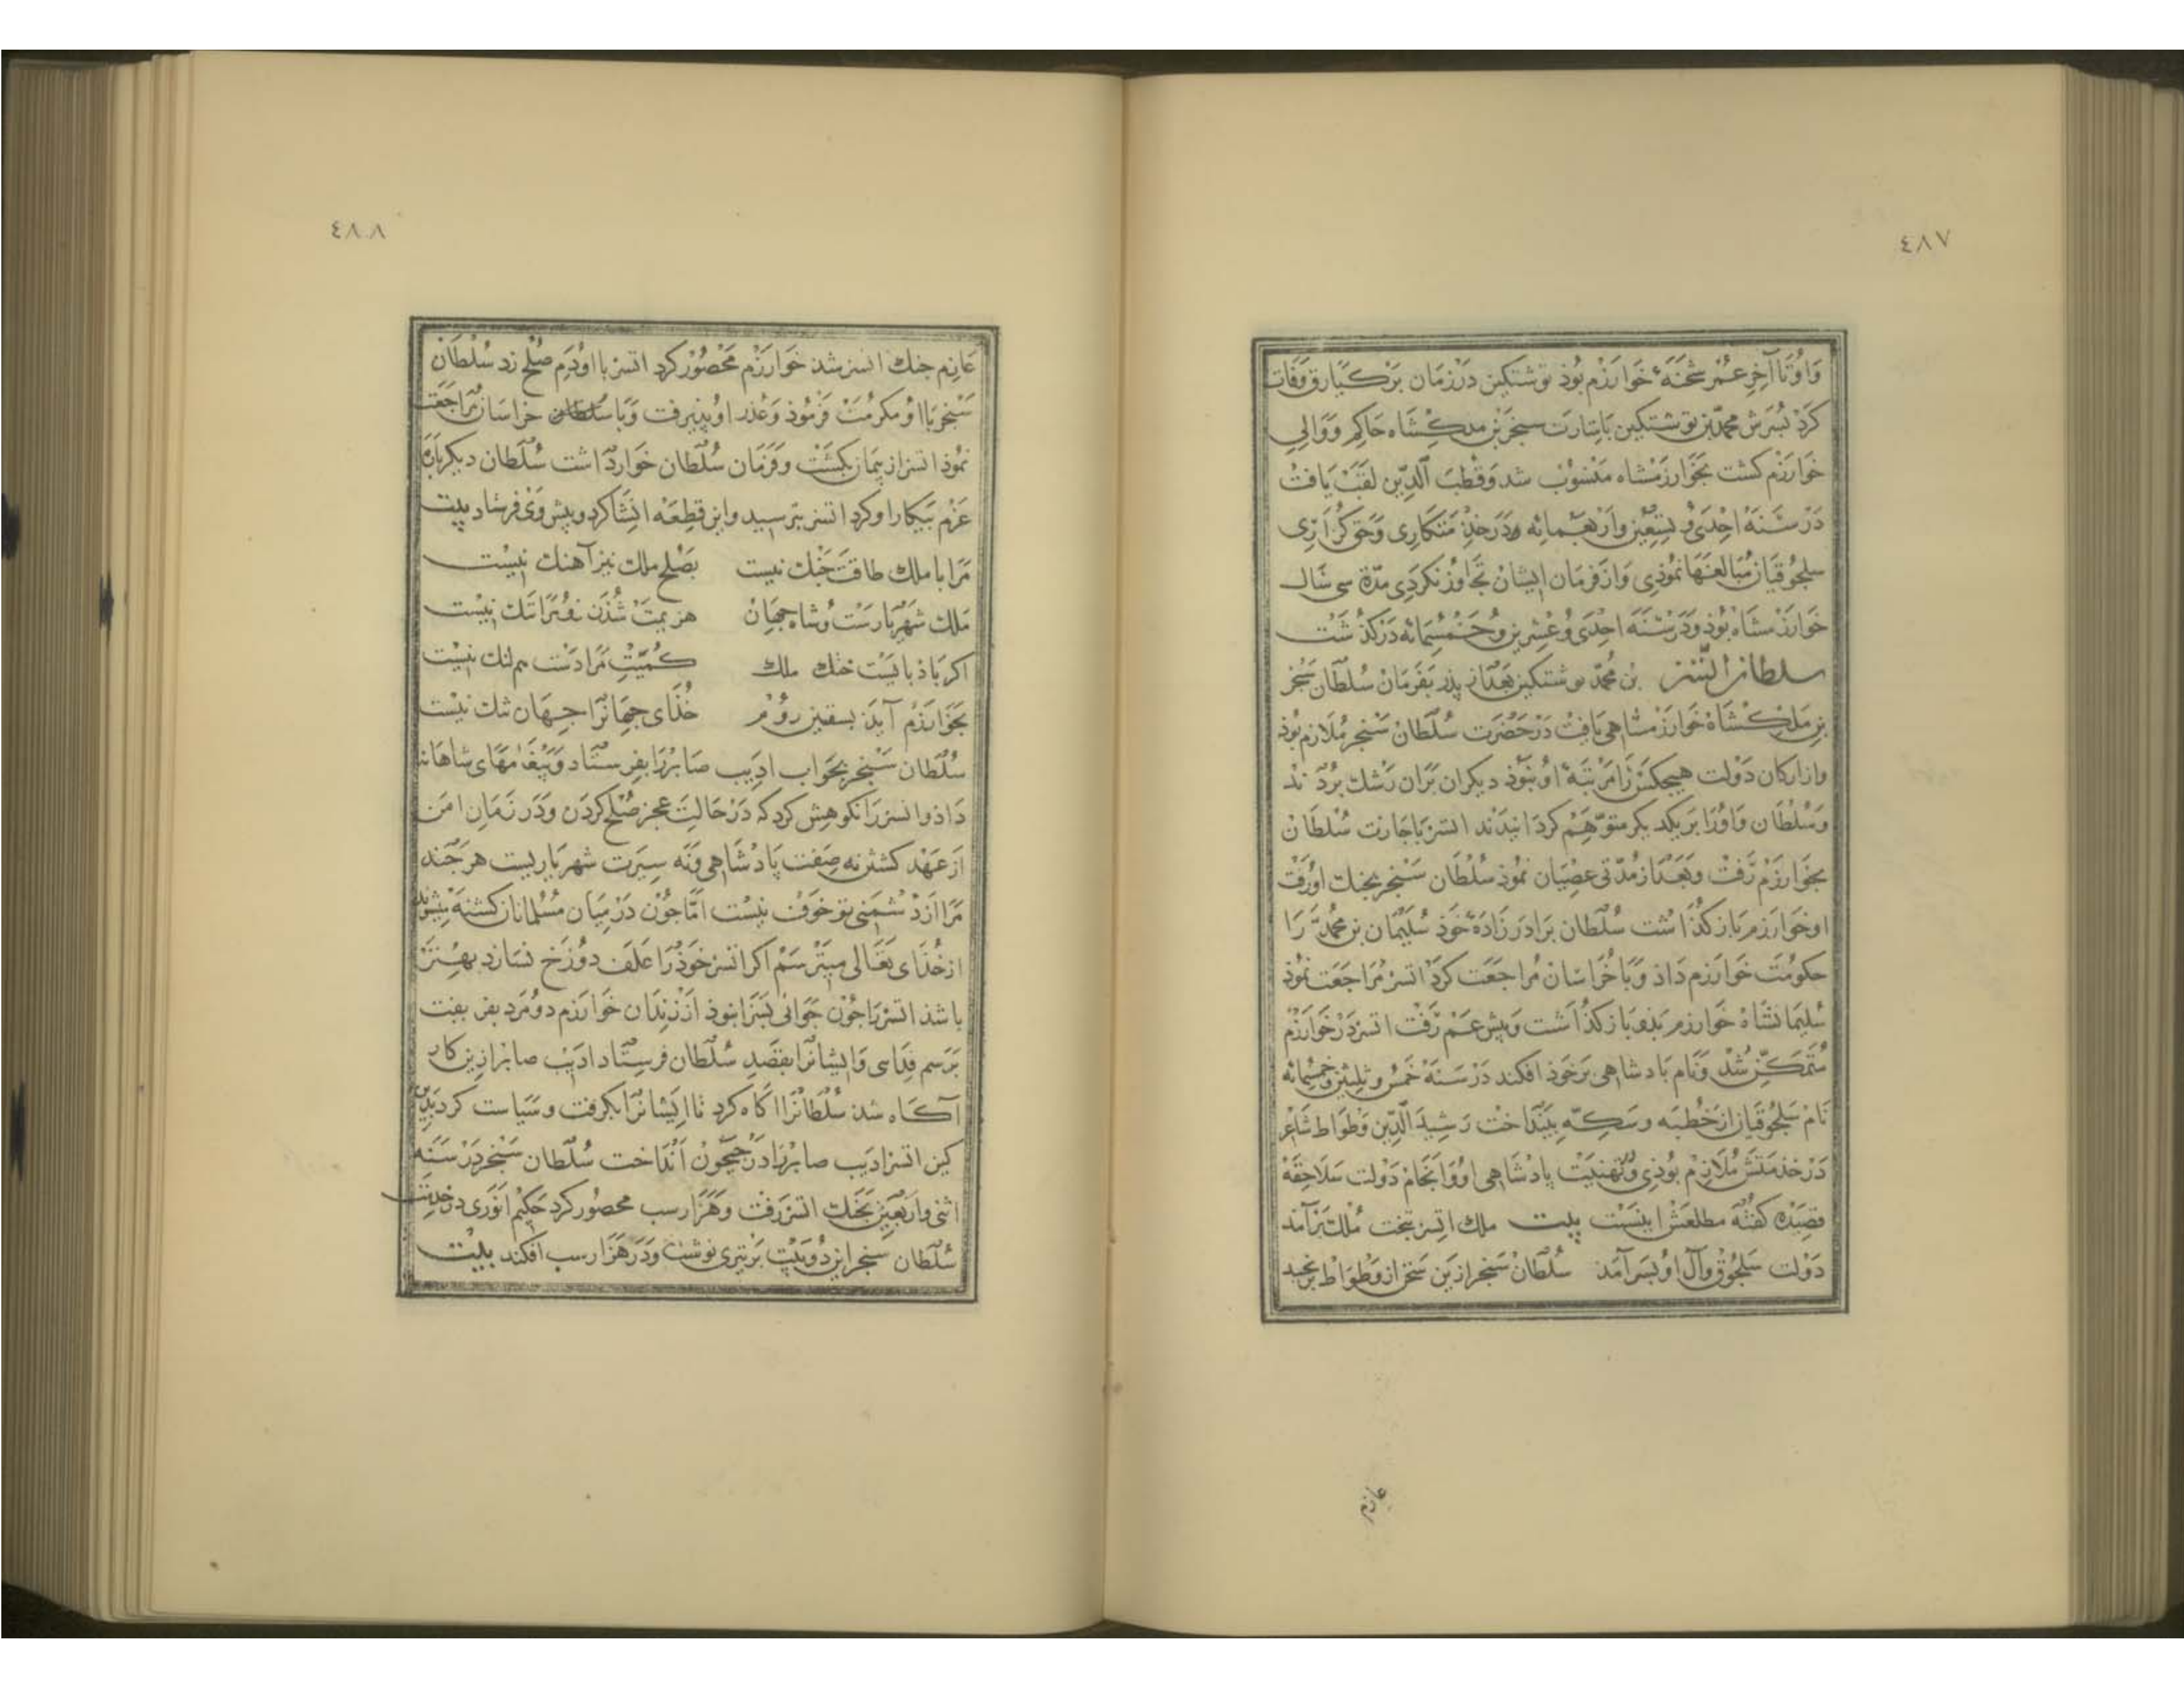 ٤٨٧
وَاوُتَا آخِرِ عُمْر شحْنَهٔ خَوارَزْم بُوذ نوشتكين دَرْزمَان بَرْكيَارق وَفَات
كَرْد بُسَرَش محمّد بن نوشتكين بَاشارَت سنجَر بْن ملكشَاه حَاكِم وَوَالِي
خَوارَزم كشت بخَوارزمْشاه مَنْسُوْب شد وَقُطبَ الدّين لقَبْ يَافتْ
دَرْ سَنَهْ اِحْدَى وَ تِسْعِيْن وَارْبَعمِائه و دَرخذمتكارِى وَحَق كزارِى
سلجوُقيَان مُبَالغتهَا نموُذِى وَازفرمَان ايشان تَجَاوُز نكردَى مدّة سى سَال
خوَارَزْمشَاه بُوذ وَدَرْ سَنَه احْدَى وَعُشرين وَخَمسْمِائه دَركذشت
سلطان اتسز بن مُحمّد نوشتكين بَعْدَاز پذر بفرمَان سُلطَان سَنْجَر
بن مَلِكْشَاهْ خَوارَزْمشاهى يَافتْ دَرْ حَضرَت سُلطَان سَنْجر مُلازم بُوذ
وازاركان دَوْلت هيچكَسْ رَا مَرْتبَهٔ اوُ نبُوذ ديكران بَران رَشك بُرْدَند
وَسُلْطَان وَاوُرَا بَر يكديكر متوَهّم كردَانِيدَند اتسز بَاجَازت سُلطَان
بخَوارَزْم رَفْت وبَعْدَاز مُدّتى عصْيَان نمُوذ سُلْطَان سَنْجر بجنك اورَفت
اوخَوارَزم بَاز كذَاشت سُلْطَان برَادَر زَادَهٔ خَوذ سُلَيْمَان بن محُمَّد رَا
حكومَت خَوارَزم دَاذ وَبَا خُرَاسَان مُراجَعَت كرَد اتسز مُرَاجَعَت نمُوذ
سُليمَانشَاهْ خَوارزم بذو بَاز كذَاشت وَپيش عَمّ رَفْت اتسز دَرْ خَوارَزْم
مُتَمَكّن شُدْ وَنَام پَادشاهى بَر خَوذ افكند دَرْ سَنَهْ خَمْس وَثلثين وَخمسمائه
نَامْ سَلْجُوقيَان ازخُطْبَه وسكّه بينْدَاخت رَشيدَ الدّين وَطْوَاط شَاعر
دَرْخذمتَش مُلَازم بُوذِى وَتهنيت پادشَاهى او وَانجَامْ دَوْلت سَلاجقَهْ
قصِيْدَه كفتَه مطلعَش اينَسْت بيت ملك اتسز بتخت مُلك برآمَد
دَوْلت سَلْجُوق وَآل اوُ بسَر آمَد سُلطَان سَنْجَر ازين سخَن از وَطْوَاط برنجيد
عازم
٤٨٨
عَازم جنك اتسز شد خَوارَزْم مَحْصُوْر كرد اتسز با اوُ دَم صُلْح زد سُلْطَان
سَنْجر بَا اوُ مكرُمتْ فَرْمُوذ وَعُذر اوُ پذيرفت وَبا سُلطان خراسَان مرَاجَعَت
نمُوذ اتسز از پيمَان بكشت وفَرْمَان سُلْطَان خَوار دَاشت سُلْطَان ديكربَاره
عَزْم پيكار او كرد اتسز بترسيد واين قطعَه انشَا كرد وپيش وَى فرستاد بيت
مَرا با ملك طاقَت جَنك نيست بصُلْح ملك نيز آهنك نيسْت
مَلك شَهْرِيَارسْت وشاه جهَان هزيمَتْ شُذن زو مُرَا ننك نيسْت
اكر بَاذ پايَسْت خنك ملك كُميَتْ مَرا دَسْت هم لنك نيسْت
بخَوارَزْم آيَد بسقسين رَوُم خُذَاى جهَانرَا جهَان تنك نيسْت
سُلْطَان سَنْجر بجَواب اديب صَابرَ رَا بفرستاد وَپيغَامهَاى شاهَانه
دَاذ واتسز رَا نكوهش كرد كه دَرْحَالت عجز صُلح كردَن وَدَر زمَان امن
ازعَهْد كشتن نه صِفت پادْشَاهى وَنَه سيرَت شهرياريست هرچَند
مَرا ازدْشمَنى تو خَوف نيست امّا چوْن دَرْ ميَان مُسْلمانان كشته ميشوند
ازخُذَاى تعَالى ميترْسَمْ اكر اتسز خَوذ رَا عَلَف دوُزَخ نسَازد بهتر
باشذ اتسز رَا چوُن جَوابى بسَزا نبوذ ازْ زنْدَان خَوارَزم دو مَرد بفريفت
بَرَسم فدَاىى وَايشانرَا بقصَد سُلْطَان فرستاد اديب صابر ازين كار
آكاه شذ سُلْطَانرَا آكَاه كرد تا ايشانرَا بكرفت وسيَاست كرد بدين
كين اتسز اديب صابر رَا دَرْجيحُون اَنْدَاخت سُلْطَان سَنْجر دَرْ سَنَه
اثنى وَاَرْبَعين بجَنك اتسز رَفْت وَهَزَاراسب محصُور كرد حَكيمْ انوَرى درخدمَت
سُلْطَان سنجر اين دُوبَيْت بَر تيرى نوشت وَدَر هَزَاراسب افكند بيْت